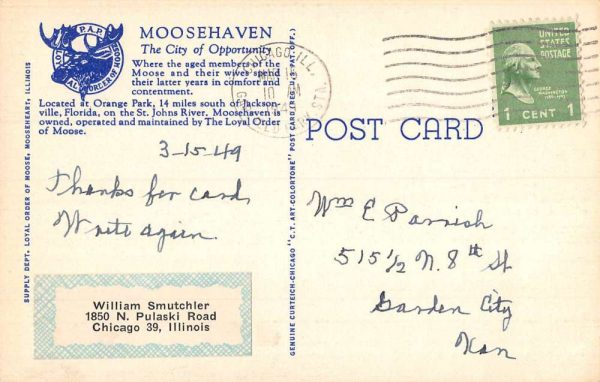 P.A.P.
LOYAL ORDER OF MOOSE
MOOSEHAVEN
The City of Opportunity
Where the aged members of the
Moose and their wives spend
their latter years in comfort and
contentment.
Located at Orange Park, 14 miles south of Jackson-
ville, Florida, on the St. Johns River. Moosehaven is
owned, operated and maintained by The Loyal Order
of Moose.
SUPPLY DEPT. LOYAL ORDER OF MOOSE, MOOSEHEART, ILLINOIS
3-15-49
Thanks for card,
Write again.
William Smutchler
1850 N. Pulaski Road
Chicago 39, Illinois
GENUINE CURTEICH-CHICAGO "C.T. ART-COLORTONE" POST CARD (REG. U.S. PAT. OFF.)
CHICAGO, ILL.
UNITED
STATES
POSTAGE
GEORGE
WASHINGTON
1 CENT 1
POST CARD
Wm E Parrish
515 1/2 N. 8th St
Garden City
Kan